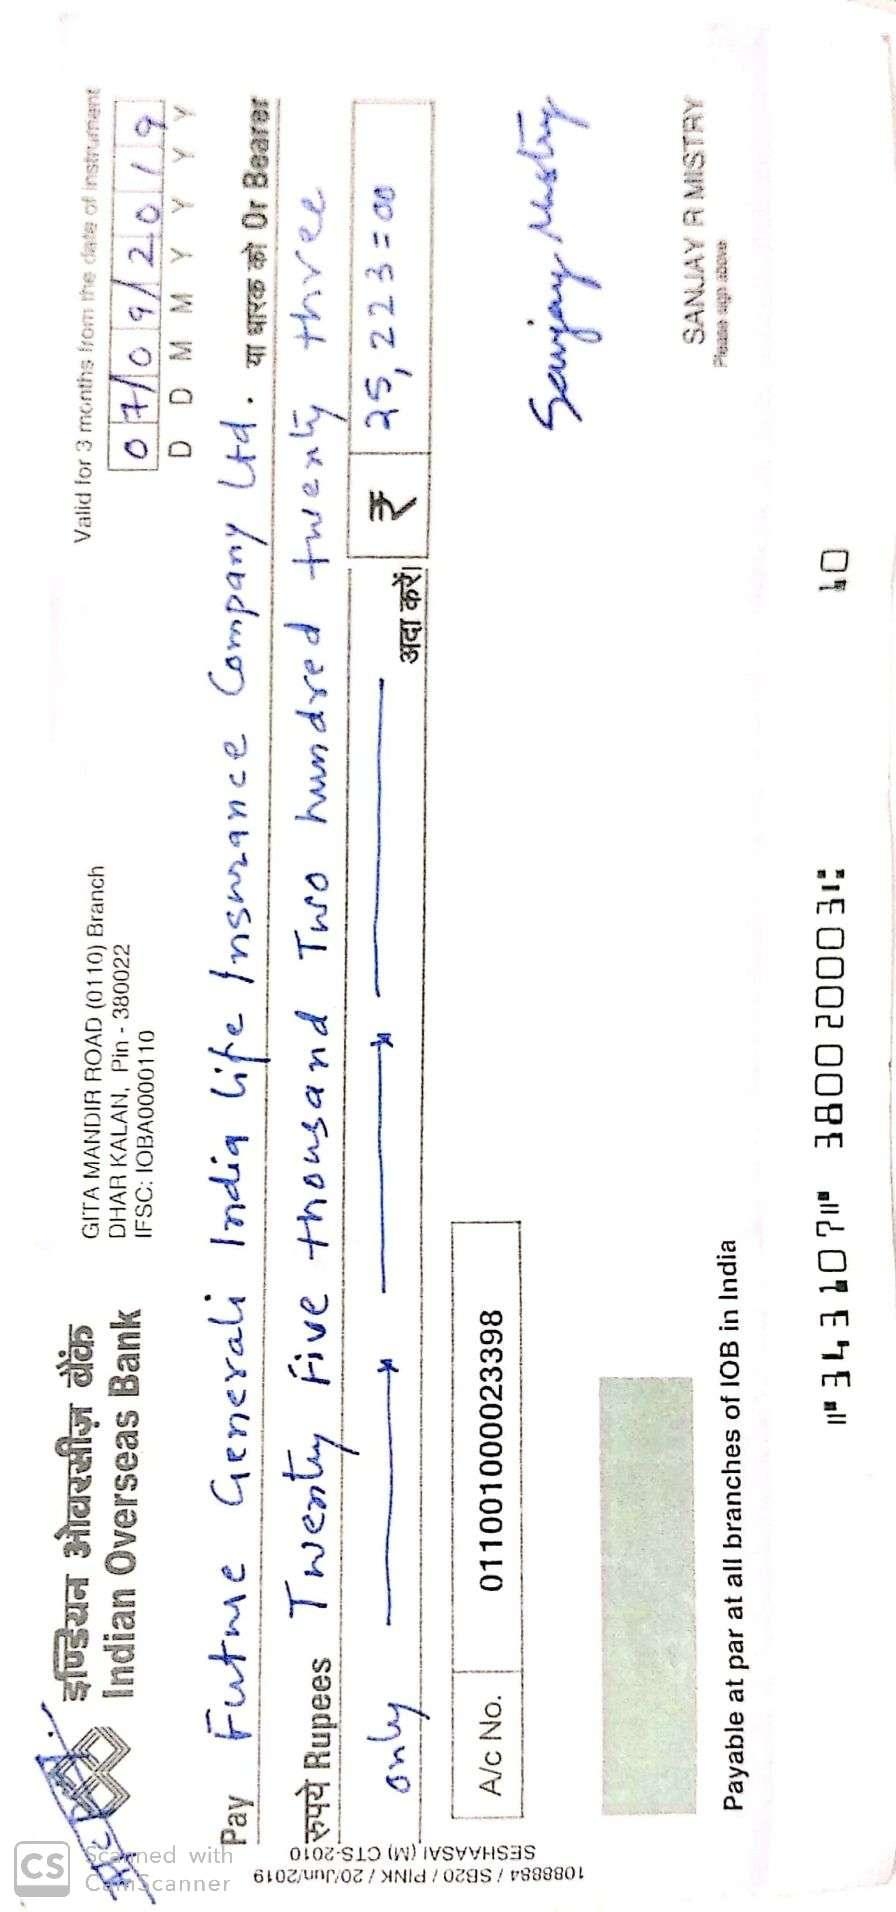 इण्डियन ओवरसीज़ बैंक
Indian Overseas Bank
GITA MANDIR ROAD (0110) Branch
DHAR KALAN, Pin - 380022
IFSC: IOBA0000110
Valid for 3 months from the date of instrument
07/09/2019
D D M M Y Y Y Y
Pay Future Generali India Life Insurance Company Ltd. या धारक को Or Bearer
रुपये Rupees Twenty Five thousand Two hundred twenty three
only अदा करें ₹ 25,223=00
A/c No. 011001000023398
Sanjay Mistry
SANJAY R MISTRY
Please sign above
Payable at par at all branches of IOB in India
⑈343107⑈ 380020003⑆ 10
1088884 / SB20 / PINK / 20/Jun/2019
SESHAASAI (M) CTS-2010
CS Scanned with
CamScanner